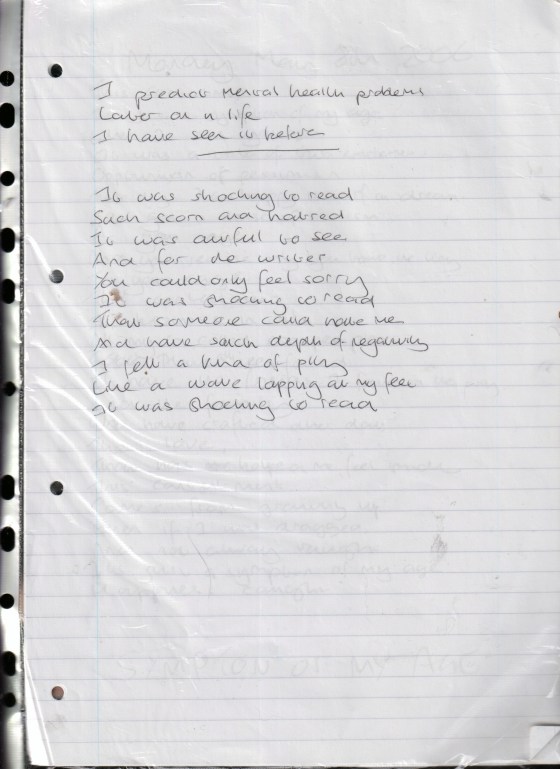 I predict mental health problems
Later on in life
I have seen it before
It was shocking to read
Such scorn and hatred
It was awful to see
And for the writer
You could only feel sorry
It was shocking to read
That someone could hate me
And have such depth of negativity
I felt a kind of pity
Like a wave lapping at my feet
It was shocking to read